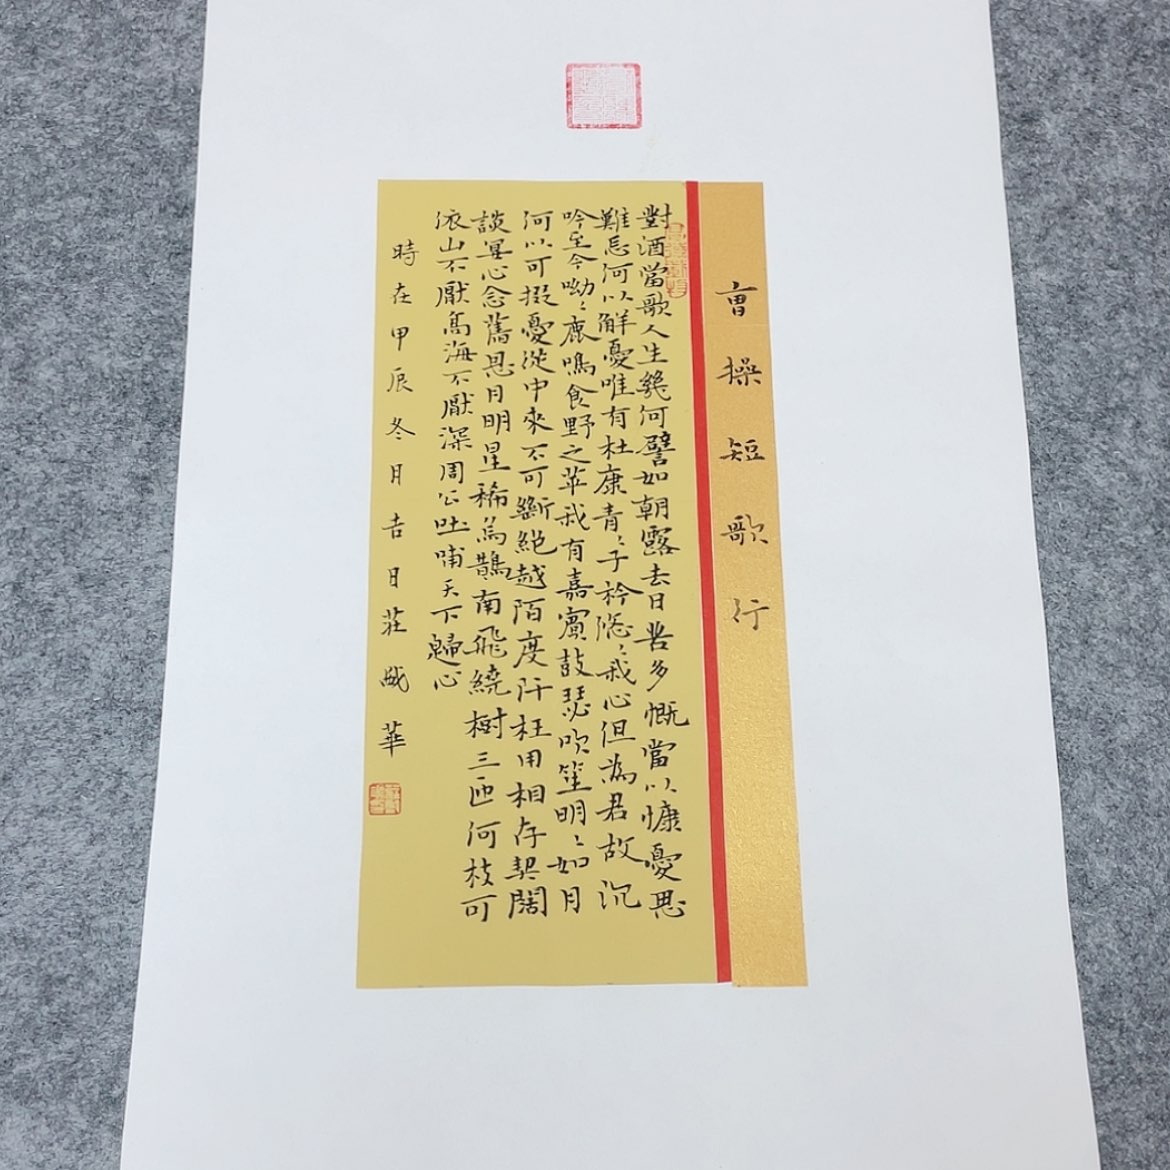 曹操短歌行
對酒當歌人生幾何譬如朝露去日苦多慨當以慷憂思
難忘何以觧憂唯有杜康青々子衿悠々我心但為君故沉
吟至今呦々鹿鳴食野之苹我有嘉賓鼓瑟吹笙明々如月
何以可掇憂從中來不可斷絕越陌度阡枉用相存契闊
談宴心念舊恩月明星稀烏鵲南飛繞樹三匝何枝可
依山不厭高海不厭深周公吐哺天下歸心
時在甲辰冬月吉日莊華